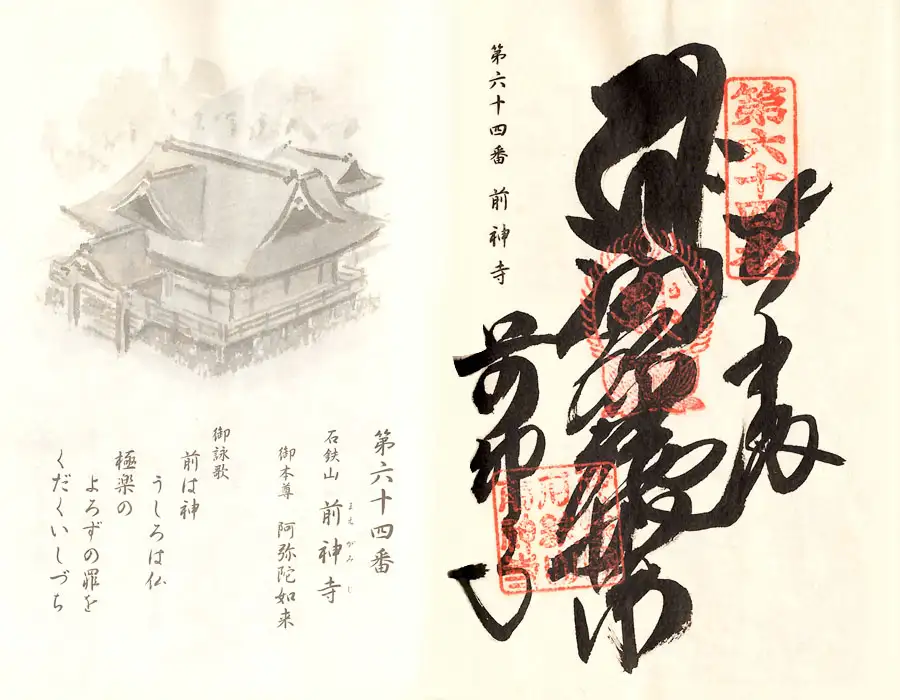 第六十四番
奉納
前神寺
第六十四番 前神寺
第六十四番
石鉄山 前神寺
まえ がみ じ
御本尊 阿弥陀如来
御詠歌
前は神
うしろは仏
極楽の
よろずの罪を
くだくいしづち